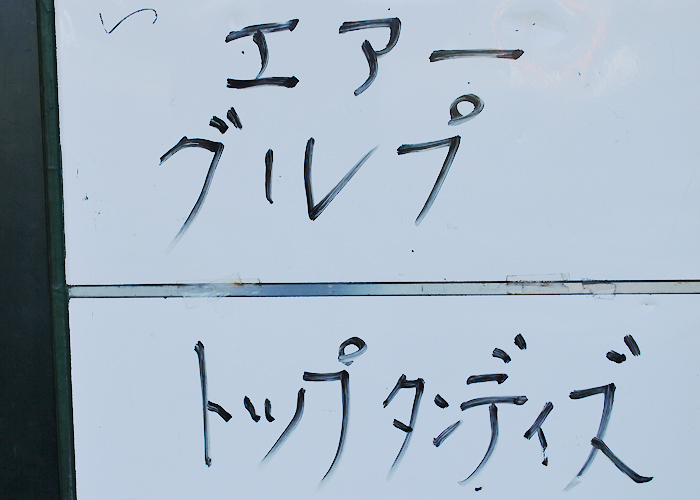 エアー
グルプ
トップタンディズ